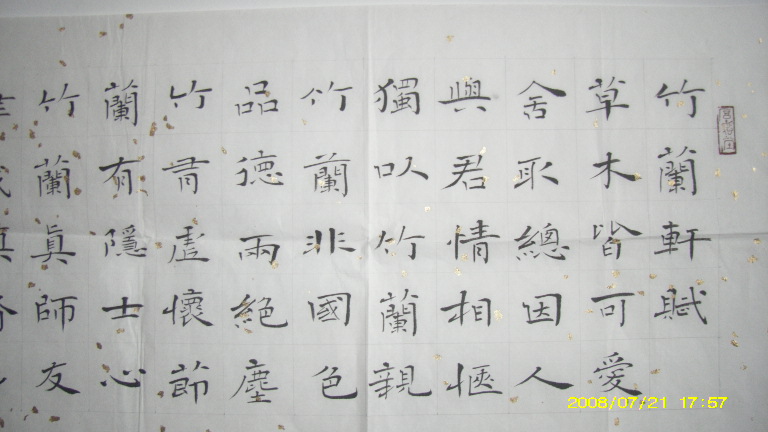 竹蘭軒賦
草木皆可愛
舍取總因人
與君情相愜
獨以竹蘭親
竹蘭非國色
品德兩絕塵
竹虛懷節
蘭有隱士心
竹蘭眞師友
2008/07/21 17:57